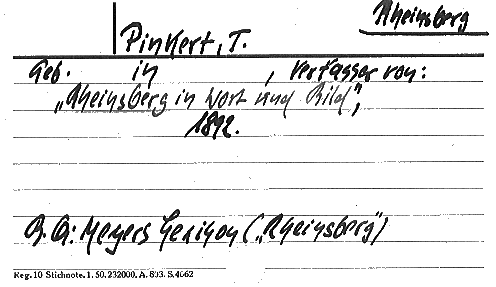 Rheinsberg
Pinkert, T.
Geb. in , Verfasser von:
„Rheinsberg in Wort und Bild",
1892.
B.A: Meyers Lexikon („Rheinsberg")
Reg. 10 Stichnote. 1. 50. 232000. A. 803. S. 4662